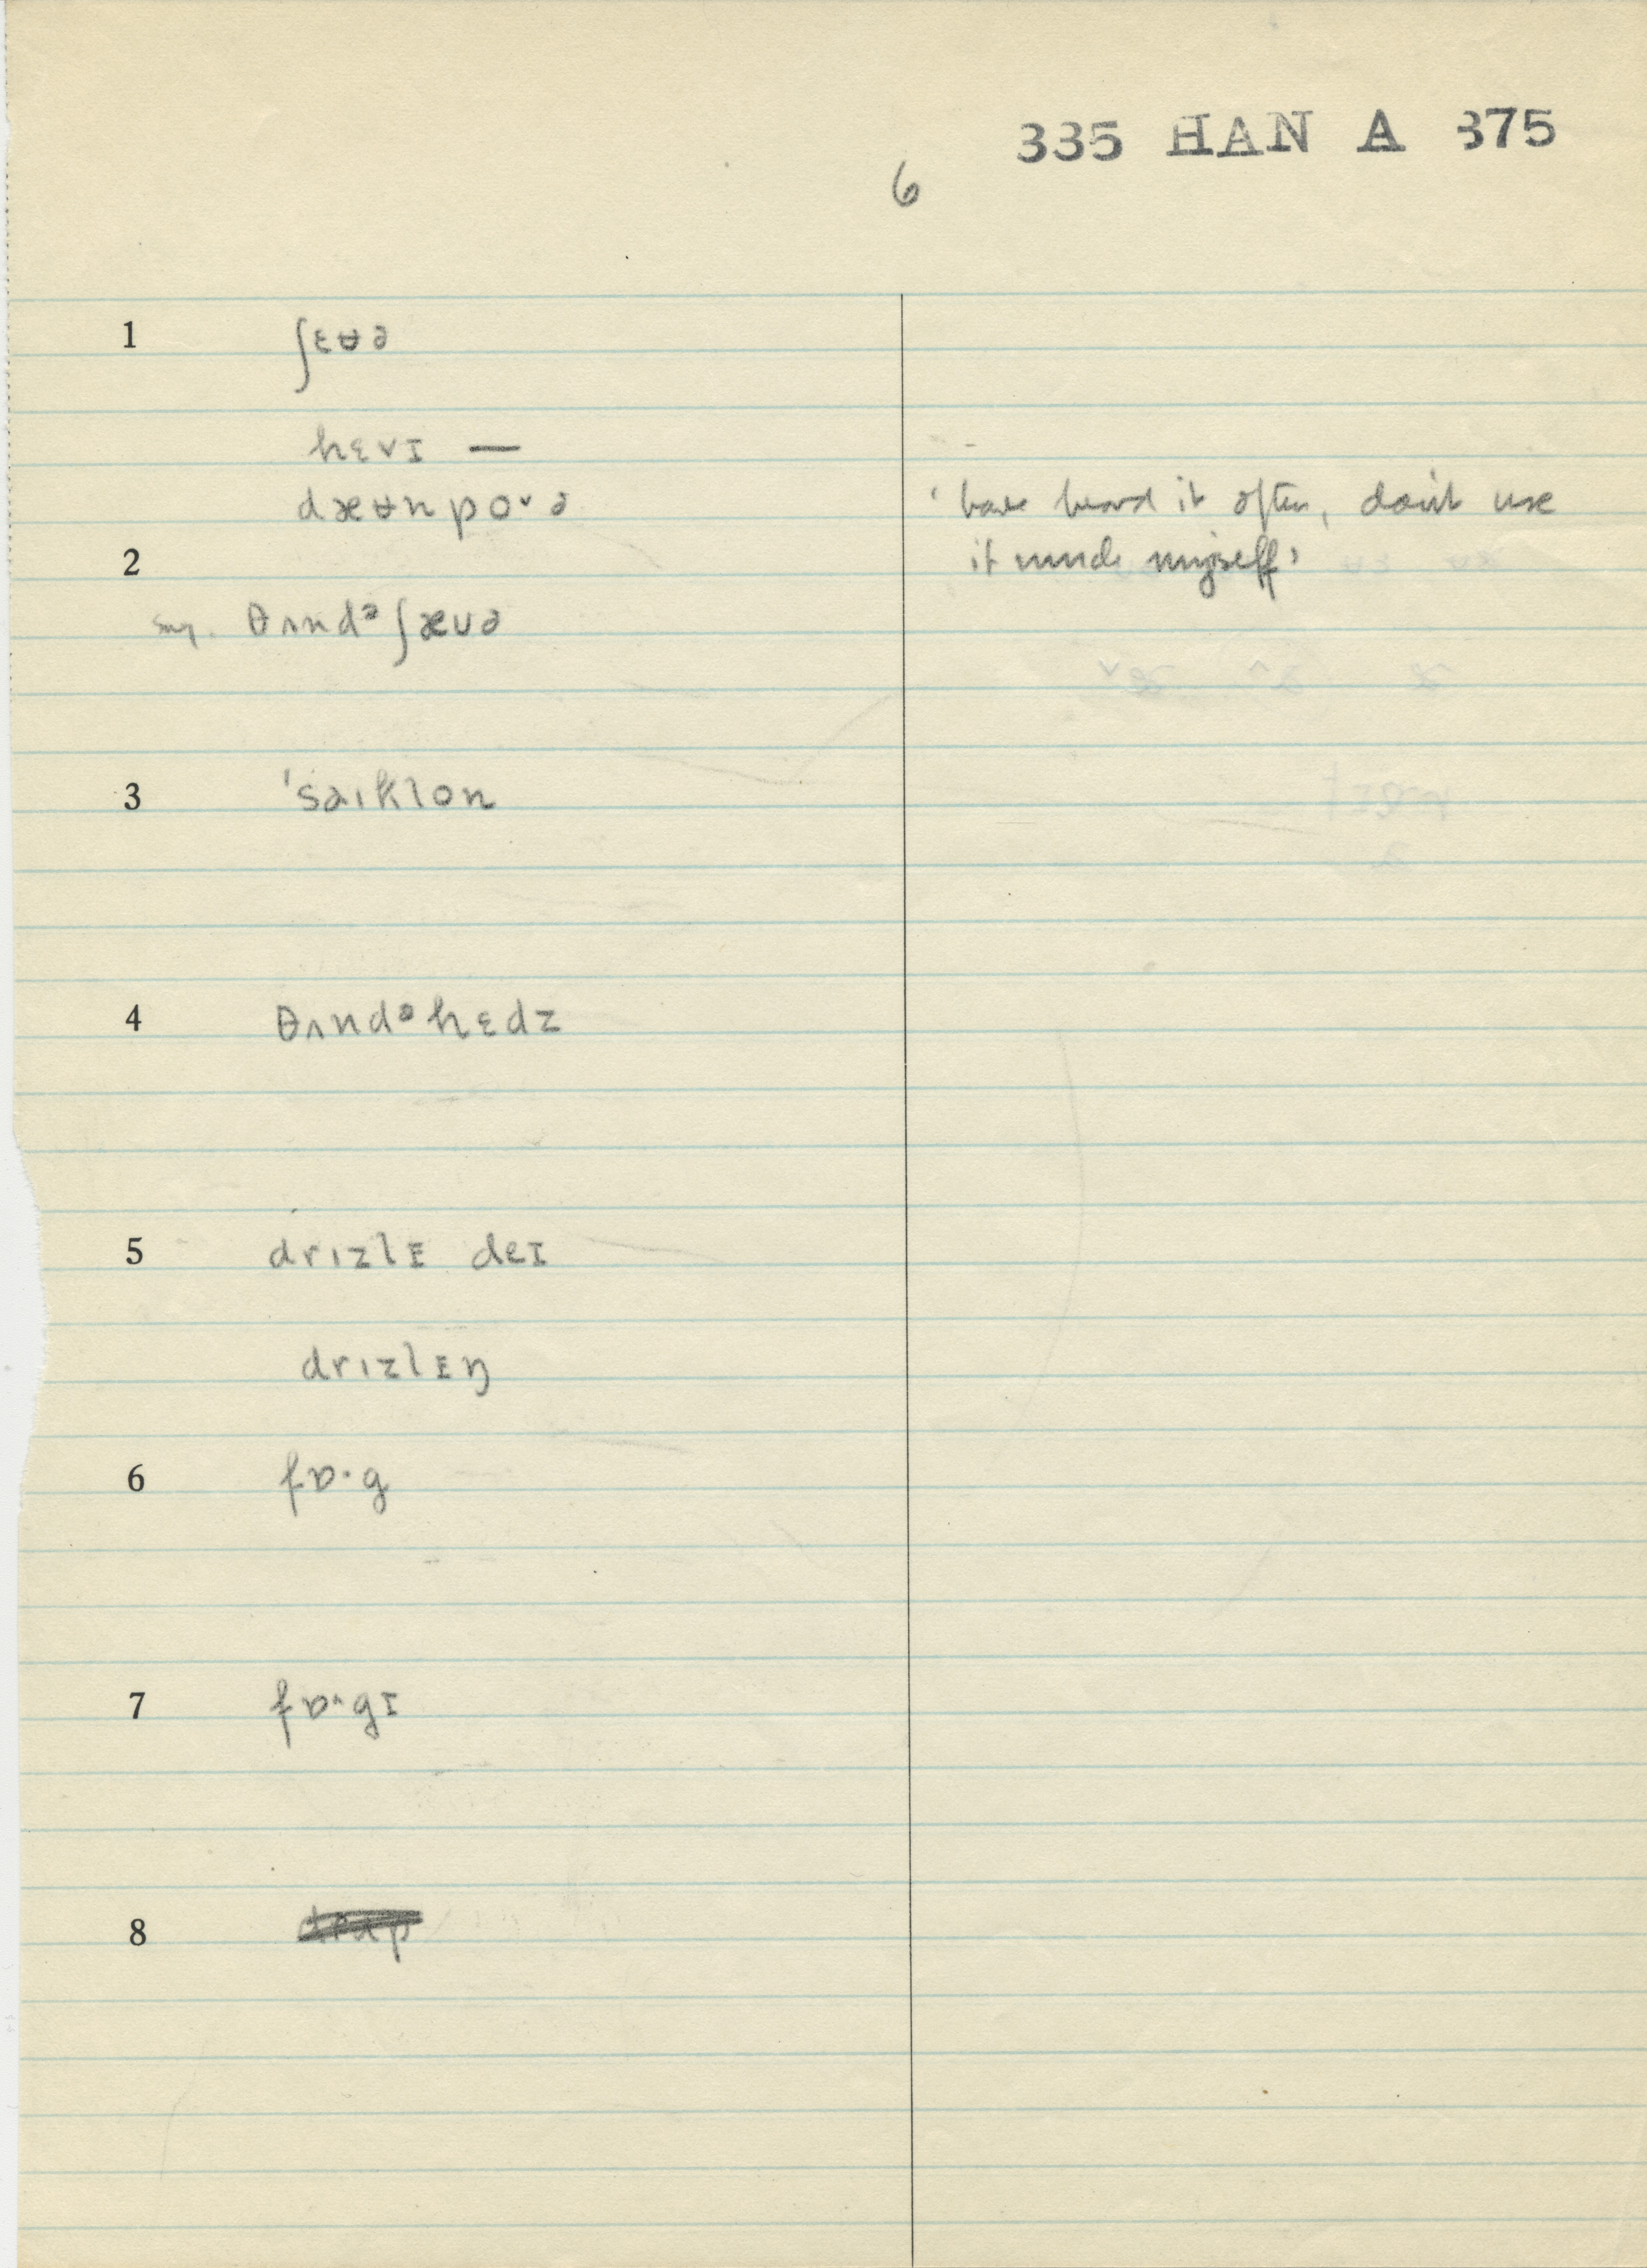 335 HAN A 375
6
1 ʃɛʉə
hɛvɪ —
dæʉnpoᵛə ‘have heard it often, don't use
2 it much myself’
sug. θʌndᵊʃæuə
3 ˈsaɪklon
4 θʌndᵊhɛdz
5 drızlɪ deɪ
drızlɪŋ
6 fɒ·g
7 fɒ^·gɪ
8